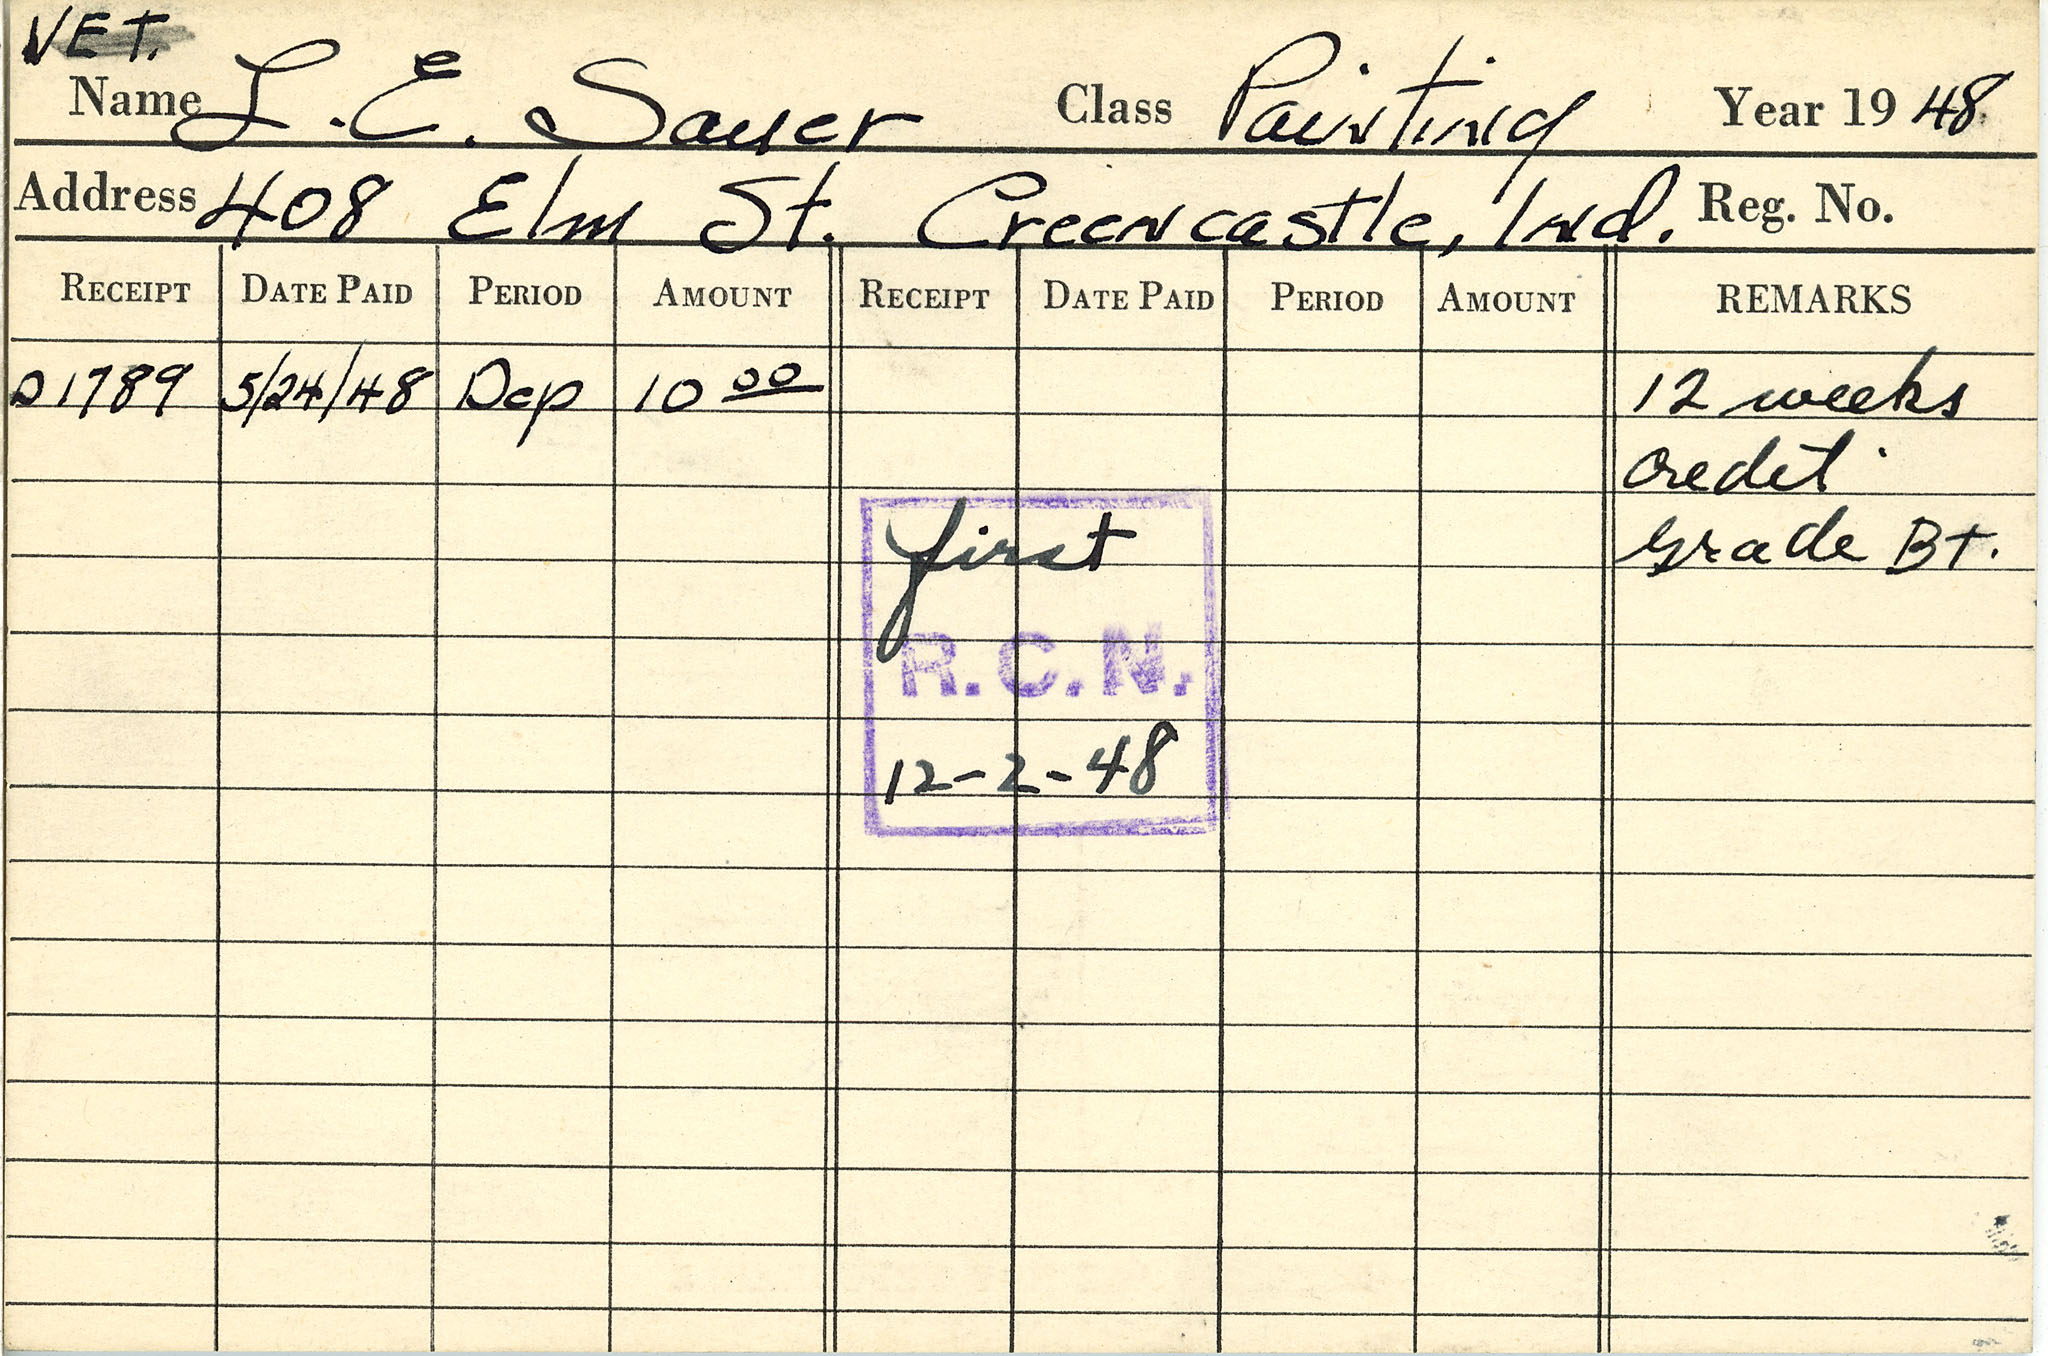 VET.
Name L. E. Sauer Class Painting Year 19 48
Address 408 Elm St. Greencastle, Ind. Reg. No.
RECEIPT DATE PAID PERIOD AMOUNT RECEIPT DATE PAID PERIOD AMOUNT REMARKS
D1789 5/24/48 Dep 10 00 12 weeks
credit
first Grade B+.
R.C.N.
12-2-48